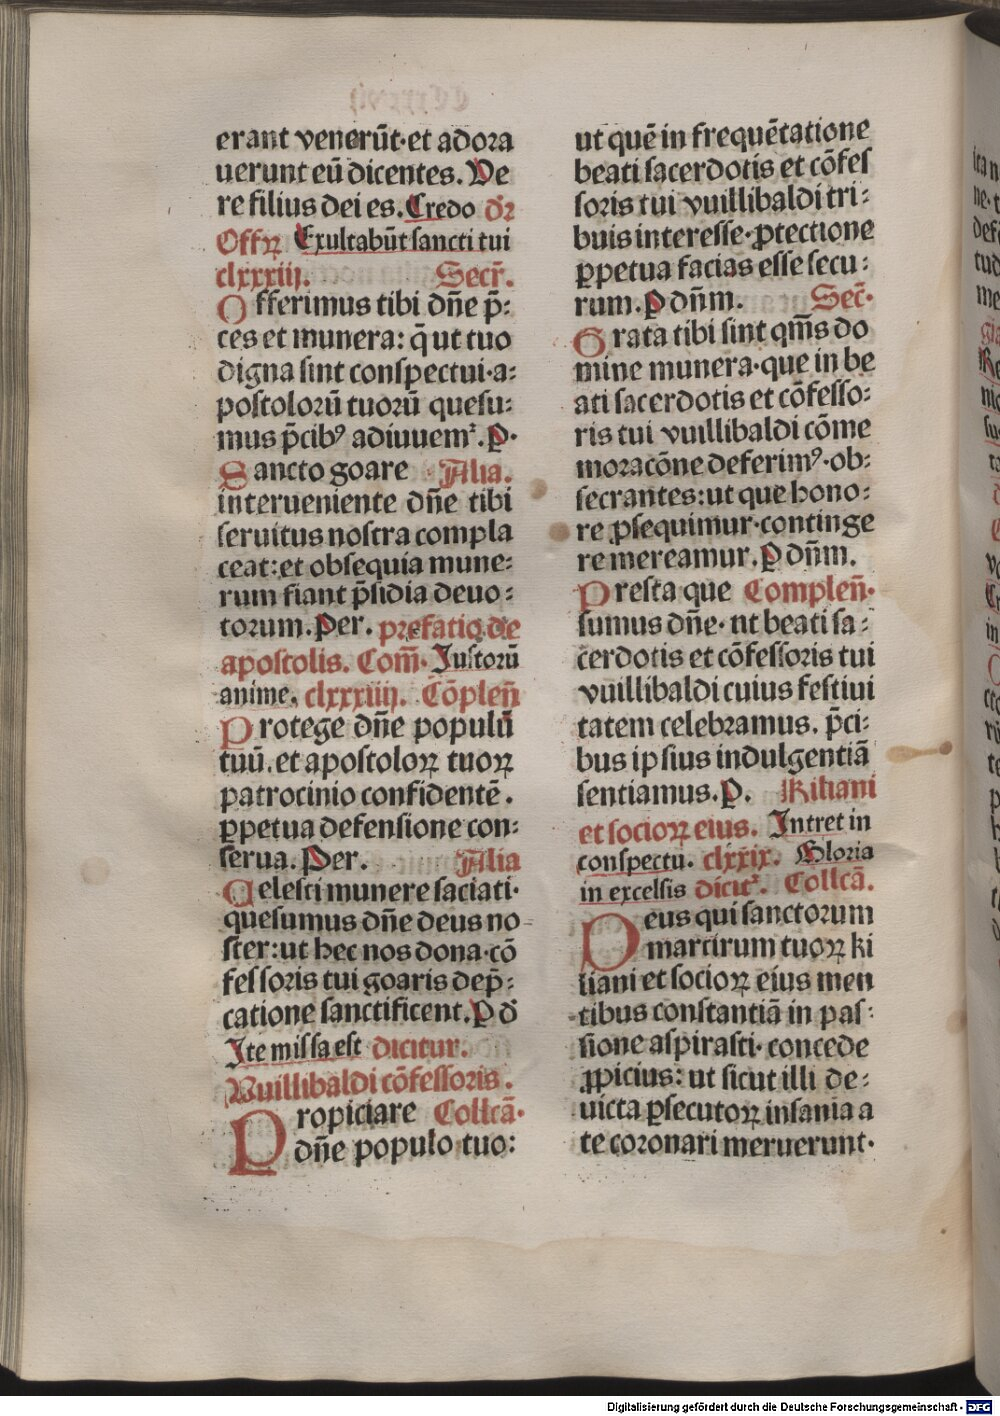 erant venerūt·et adora
uerunt eū dicentes. Ve
re filius dei es. Credo dr̄
Offꝝ Exultabūt sancti tui
clxxxiij. Secr̄.
Offerimus tibi dn̄e p̄-
ces et munera: q̄ ut tuo
digna sint conspectui·a-
postolorū tuorū quesu-
mus p̄cibꝰ adiuuemᷣ. P·
Sancto goare Alia.
interueniente dn̄e tibi
seruitus nostra compla
ceat:et obsequia mune-
rum fiant p̄sidia deuo-
torum. Per. prefatio de
apostolis. Com̄· Iustorū
anime. clxxxiiij. Cōplen̄
Protege dn̄e populū
tuū. et apostoloꝝ tuoꝝ
patrocinio confidentē.
ꝑpetua defensione con-
serua. Per. Alia
Celesti munere saciati·
quesumus dn̄e deus no
ster:ut hec nos dona·cō
fessoris tui goaris dep̄-
catione sanctificent. P d̄
Ite missa est dicitur.
Vuillibaldi cōfessoris.
Propiciare Collcā·
dn̄e populo tuo:
ut quē in frequētatione
beati sacerdotis et cōfes
soris tui vuillibaldi tri-
buis interesse·ꝓtectione
ꝑpetua facias esse secu-
rum. P dn̄m. Sec̄·
Grata tibi sint qm̄s do
mine munera·que in be
ati sacerdotis et cōfesso-
ris tui vuillibaldi cōme
moracōne deferimꝰ·ob-
secrantes:ut que hono-
re ꝓsequimur·continge
re mereamur. P dn̄m.
Presta que Complen̄·
sumus dn̄e· ut beati sa-
cerdotis et cōfessoris tui
vuillibaldi cuius festiui
tatem celebramus. p̄ci-
bus ipsius indulgentiā
sentiamus. P. Kiliani
et socioꝝ eius. Intret in
conspectu. clxxix. Gloria
in excelsis dicitᷣ. Collcā.
Deus qui sanctorum
martirum tuoꝝ ki
liani et socioꝝ eius men
tibus constantiā in pas-
sione aspirasti· concede
ꝓpicius: ut sicut illi de-
uicta ꝑsecutoꝝ insania a
te coronari meruerunt·
Digitalisierung gefördert durch die Deutsche Forschungsgemeinschaft - DFG